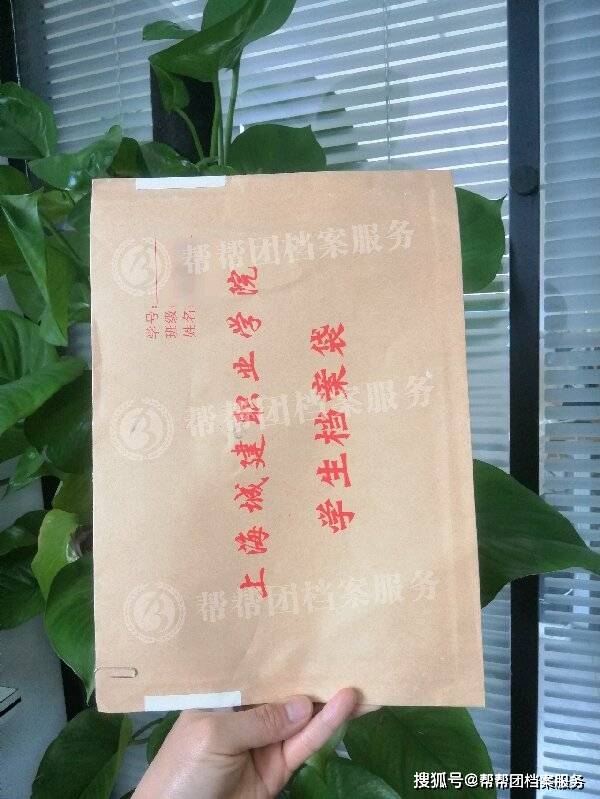 学号:
班级:
姓名:
上海城建职业学院
学生档案袋
帮帮团档案服务
帮帮团档案服务
帮帮团档案服务
搜狐号@帮帮团档案服务